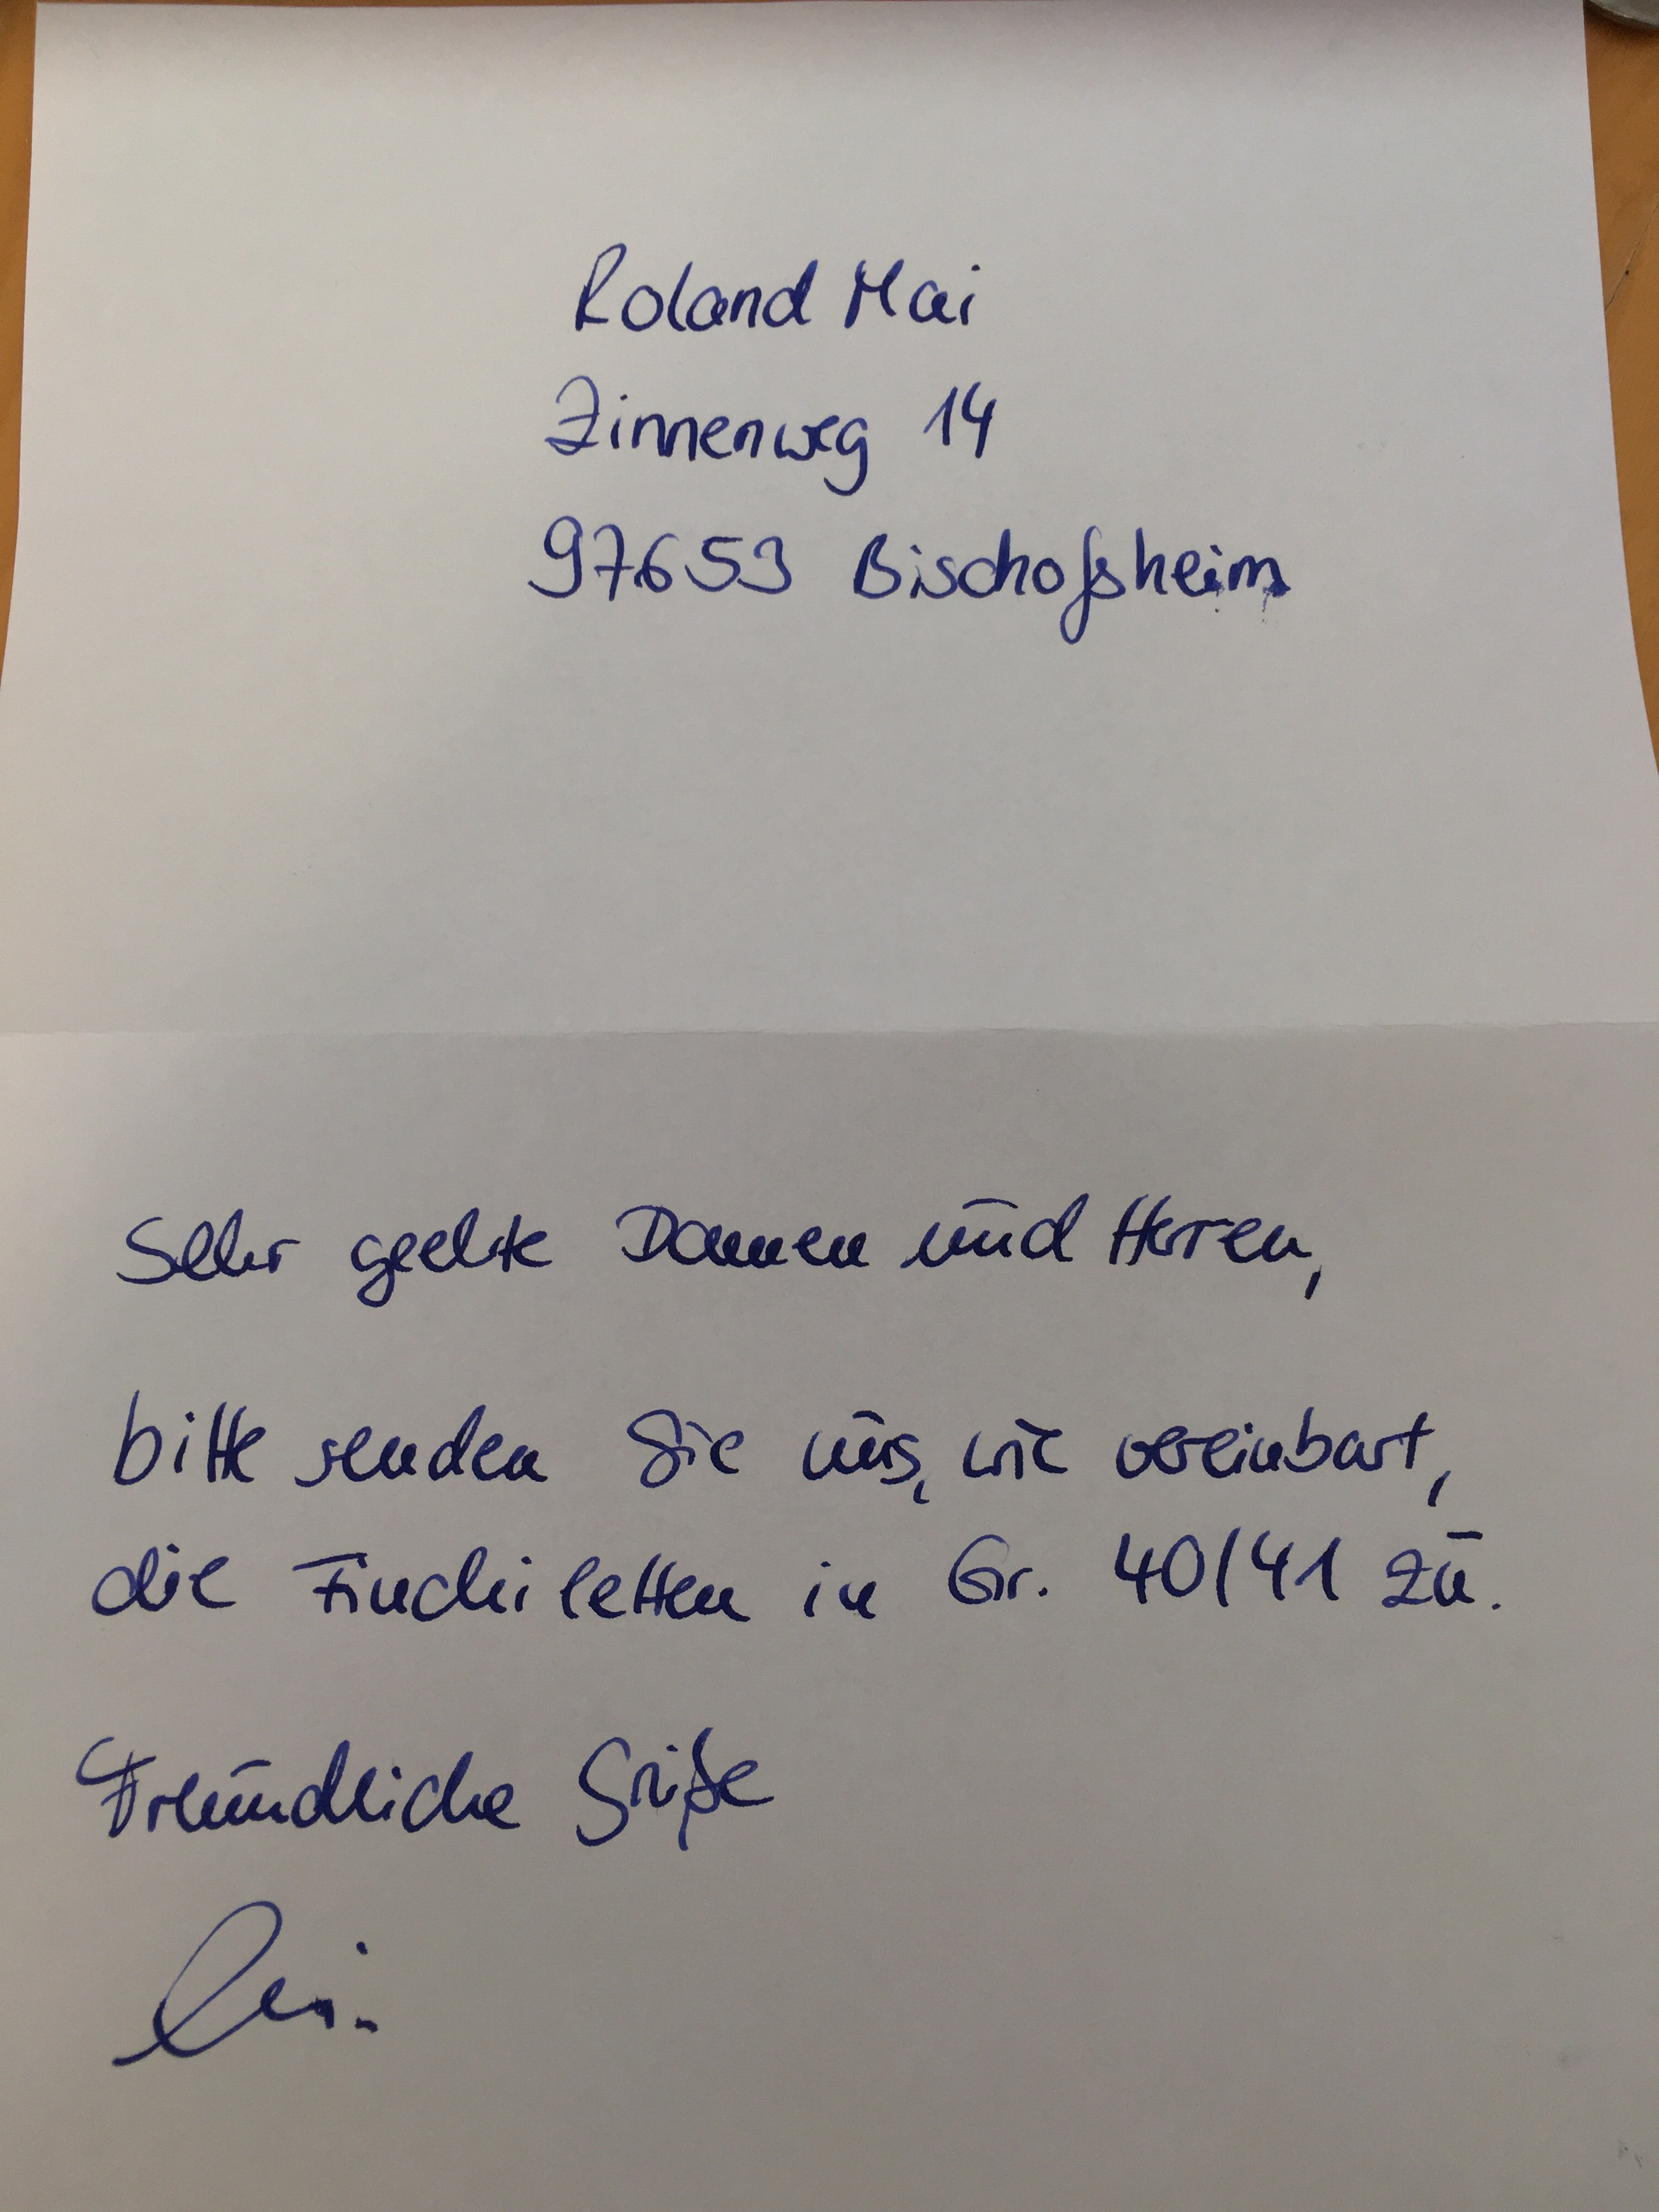 Roland Mai
Zinnenweg 14
97653 Bischofsheim
Sehr geehrte Damen und Herren,
bitte senden Sie uns, wie vereinbart,
die in Gr. 40/41 zu.
Freundliche Grüße